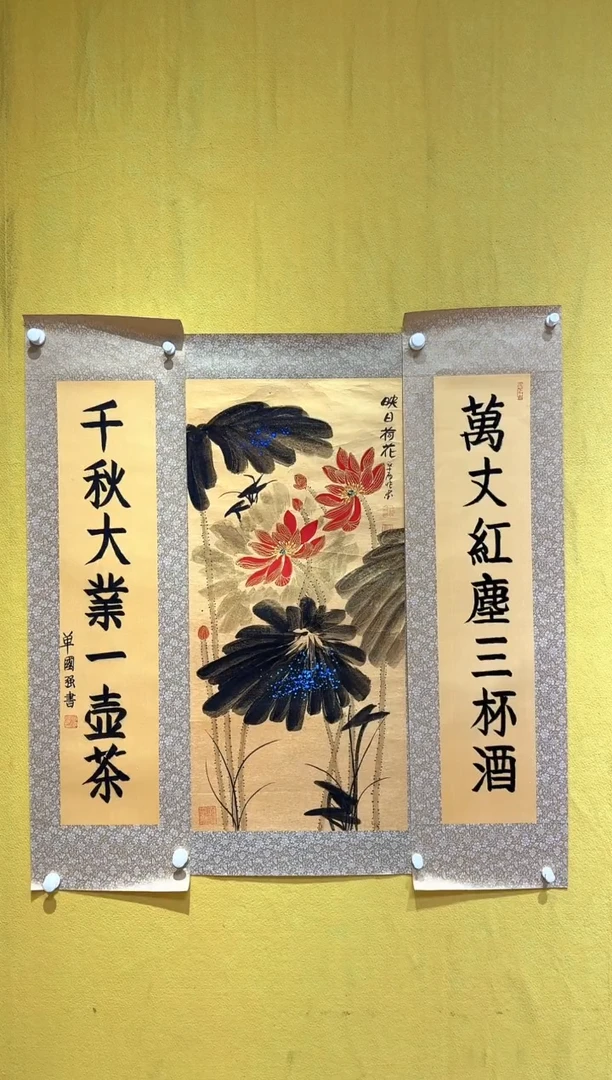 萬丈紅塵三杯酒
映日荷花
千秋大業一壺茶
單國强書